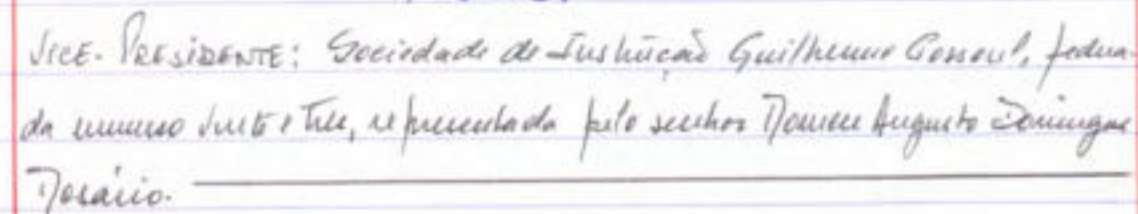 VICE-PRESIDENTE: Sociedade de Instrução Guilherme Cossoul, federa-
da numero vinte e três, representada pelo senhor Augusto Domingos
Rosário.